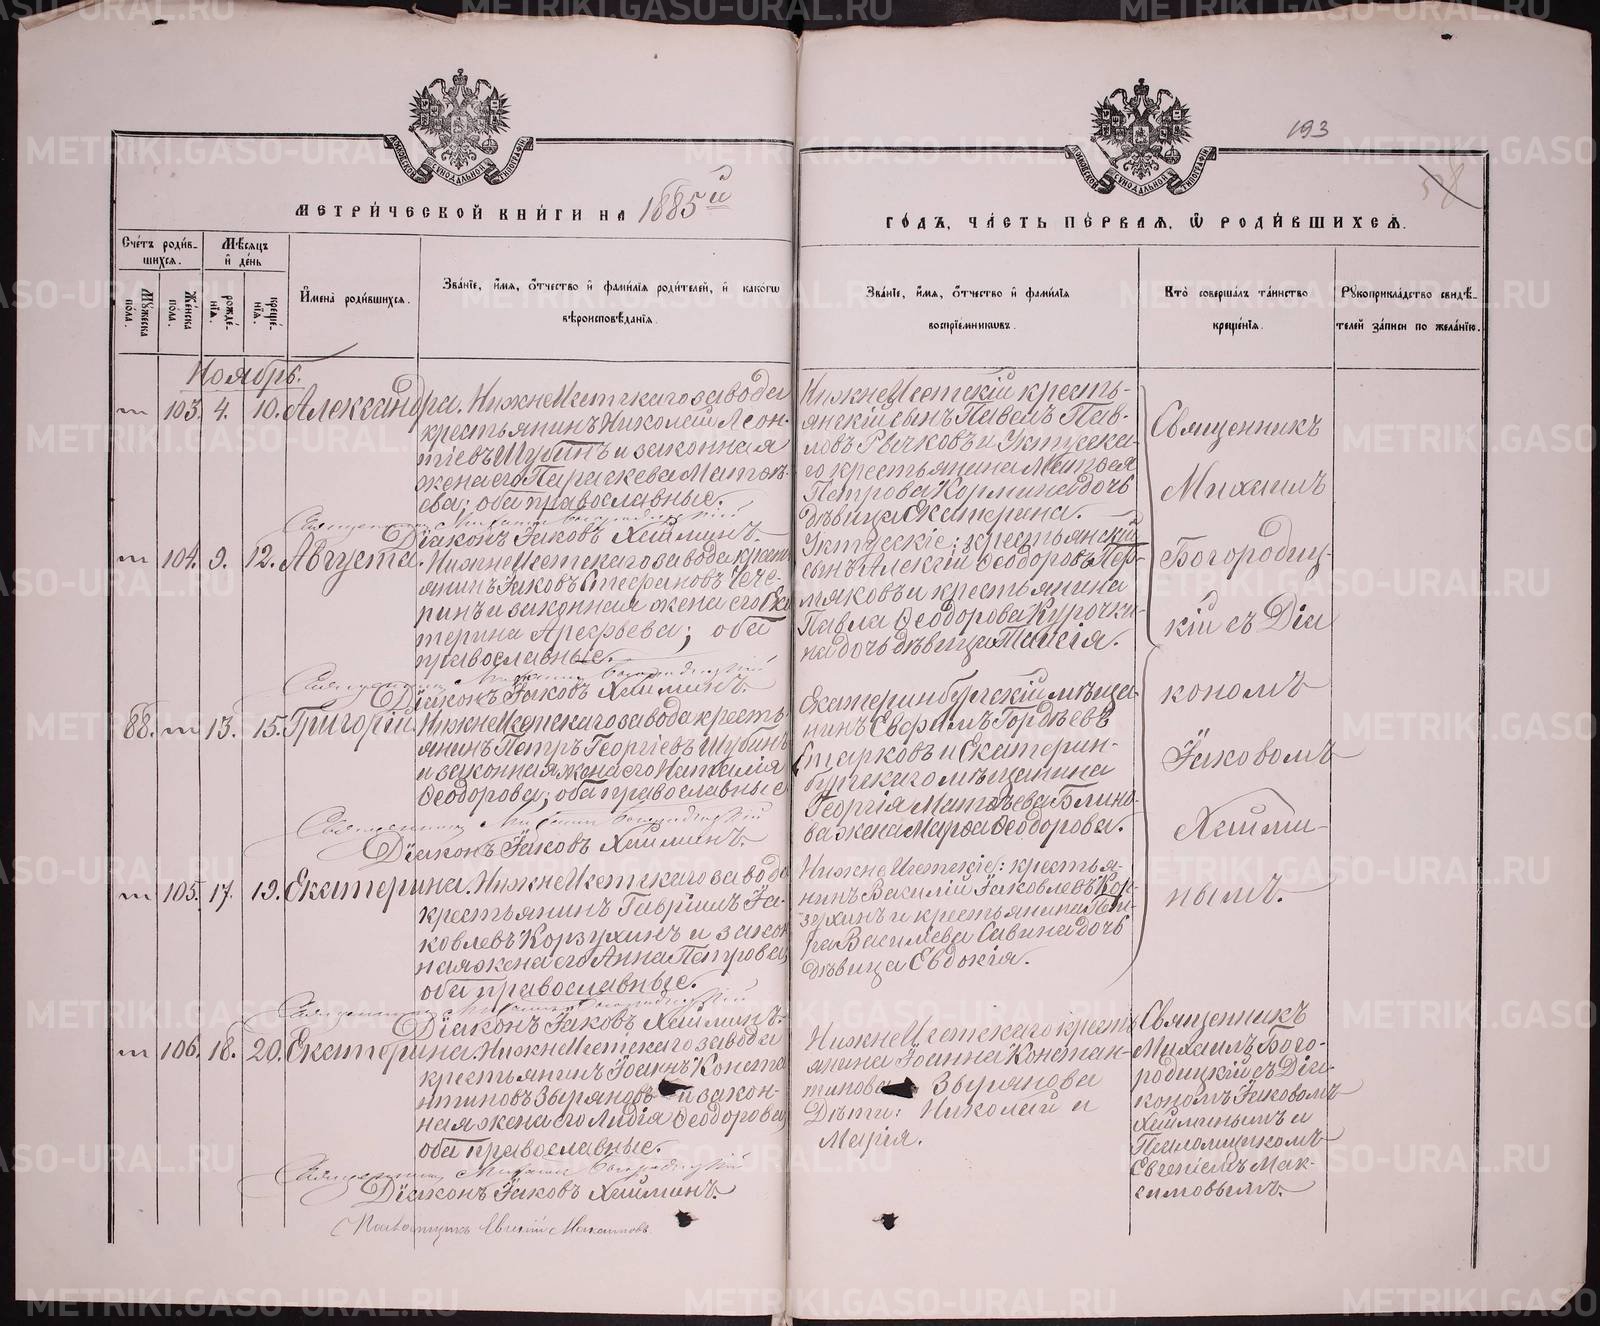 193
МЕТРИ́ЧЕСКОЙ КНИ́ГИ НА 1885й
ГО́ДЪ, ЧА́СТЬ ПЕ́РВАѦ, Ѡ҆ РОДИ́ВШИХСѦ.
Сче́тъ роди́в-
шихсѧ.
Мѣ́сѧцъ
и҆ де́нь
Мꙋжеска
пола.
Же́нска
пола.
рожде́-
нїѧ.
креще́-
нїѧ.
И҆мена̀ роди́вшихсѧ.
Зва́нїе, и҆́мѧ, ѻ҆́тчество и҆ фами́лїѧ роди́телей, и҆ како́гѡ
вѣроисповѣ́данїѧ.
Зва́нїе, и҆́мѧ, ѻ҆́тчество и҆ фами́лїѧ
воспрїе́мникѡвъ.
Кто̀ соверша́лъ та́инство
креще́нїѧ.
Рꙋкоприкла́дство свидѣ́-
телей за́писи по жела́нїю.
Ноябрь.
103. 4. 10. Александра. НижнеИсетскаго завода
крестьянинъ Николай Леон-
тіевъ Шубинъ и законная
жена его Параскева Матѳѣ-
ева; оба православные.
Священникъ Михаилъ Богородицкій
Діаконъ Іаковъ Хайминъ.
НижнеИсетскій кресть-
янскій сынъ Павелъ Пав-
ловъ Рычковъ и Уктусска-
го крестьянина Матѳея
Петрова Кормина дочь
дѣвица Екатерина.
104. 9. 12. Августа. НижнеИсетскаго завода кресть-
янинъ Іаковъ Стефановъ Чече-
ринъ и законная жена его Ека-
терина Арефьева; оба
православные.
Священникъ Михаилъ Богородицкій
Діаконъ Іаковъ Хайминъ.
Уктусскіе: крестьянскій
сынъ Алексій Ѳеодоровъ Пер-
мяковъ и крестьянина
Павла Ѳеодорова Курочки-
на дочь дѣвица Таисія.
88. 13. 15. Григорій. НижнеИсетскаго завода кресть-
янинъ Петръ Георгіевъ Шубинъ
и законная жена его Наталія
Ѳеодорова; оба православные
Священникъ Михаилъ Богородицкій
Діаконъ Іаковъ Хайминъ.
Екатеринбургскій мѣща-
нинъ Евфимъ Гордѣевъ
Старковъ и Екатерин-
бургскаго мѣщанина
Георгія Матѳѣева Блино-
ва жена Марѳа Ѳеодорова.
105. 17. 19. Екатерина. НижнеИсетскаго завода
крестьянинъ Гавріилъ Іа-
ковлевъ Корзухинъ и закон-
ная жена его Анна Петрова;
оба православные.
Священникъ Михаилъ Богородицкій
Діаконъ Іаковъ Хайминъ.
НижнеИсетскіе: крестья-
нинъ Василій Іаковлевъ Кор-
зухинъ и крестьянина Пет-
ра Василіева Савина дочь
дѣвица Евдокія.
Священникъ
Михаилъ
Богородиц-
кій съ Діа
кономъ
Іаковомъ
Хайми-
нымъ.
106. 18. 20. Екатерина. НижнеИсетскаго завода
крестьянинъ Іоаннъ Конста
нтиновъ Зыряновъ и закон-
ная жена его Лидія Ѳеодорова;
оба православные.
Священникъ Михаилъ Богородицкій
Діаконъ Іаковъ Хайминъ.
Псаломщикъ Евгеній Максимовъ.
НижнеИсетскаго кресть
янина Іоанна Констан-
тинова Зырянова
Дѣти: Николай и
Марія.
Священникъ
Михаилъ Бого-
родицкій съ Діа-
кономъ Іаковомъ
Хайминымъ и
Псаломщикомъ
Евгеніемъ Мак-
симовымъ.
METRIKI.GASO-URAL.RU